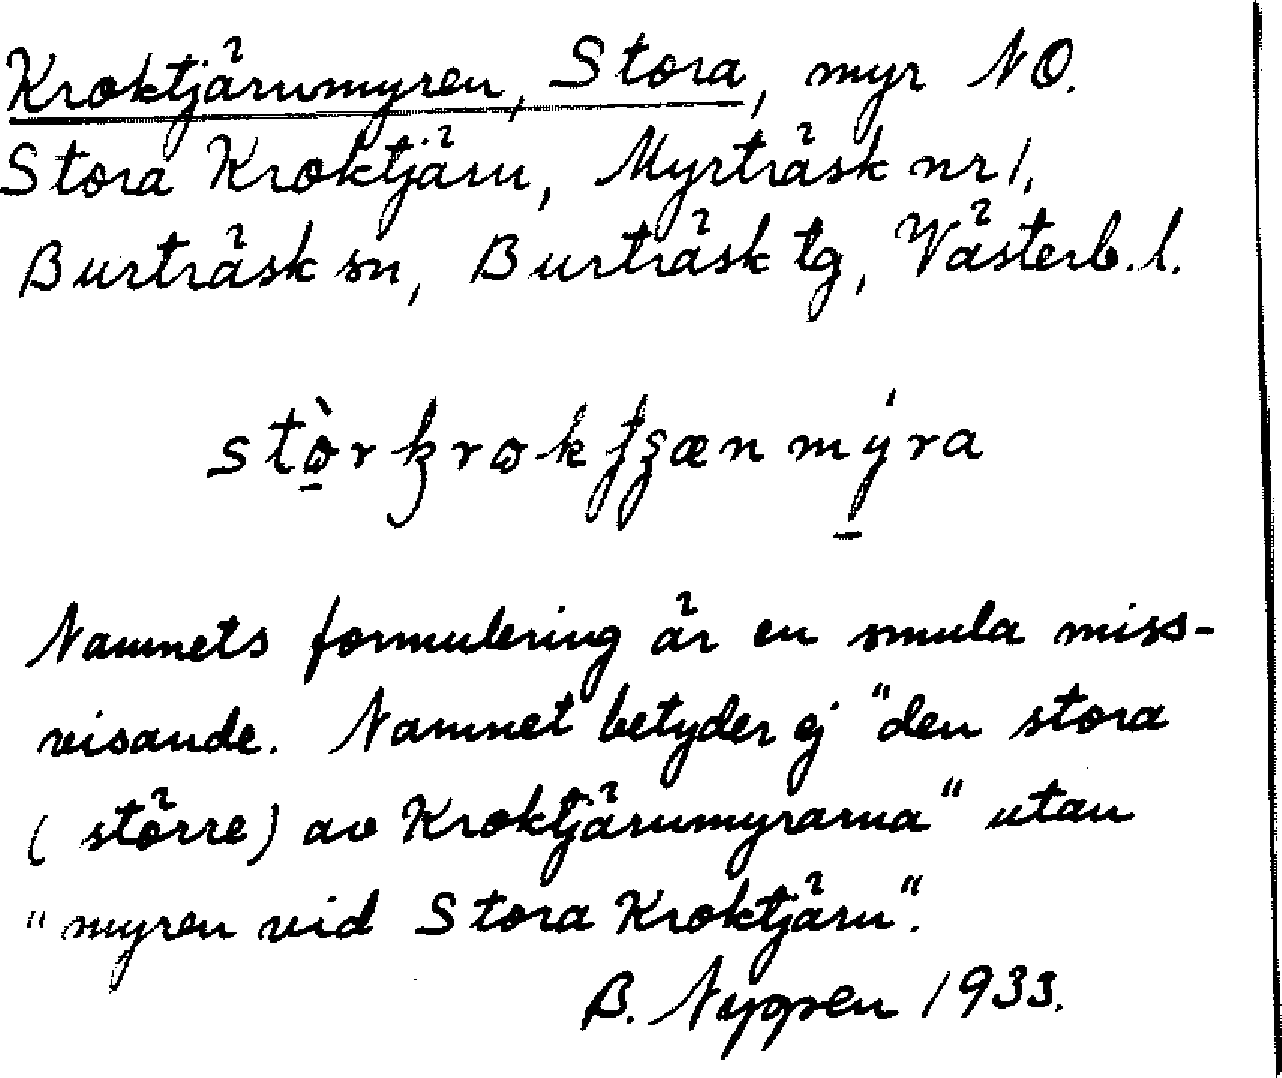 Kroktjärnmyren, Stora, myr NO.
Stora Kroktjärn, Myrträsk nr 1,
Burträsk sn, Burträsk tg, Västerb. l.
Namnets formulering är en smula miss-
visande. Namnet betyder ej "den stora
(större) av Kroktjärnmyrarna" utan
"myren vid Stora Kroktjärn".
B. Nyppen 1933.